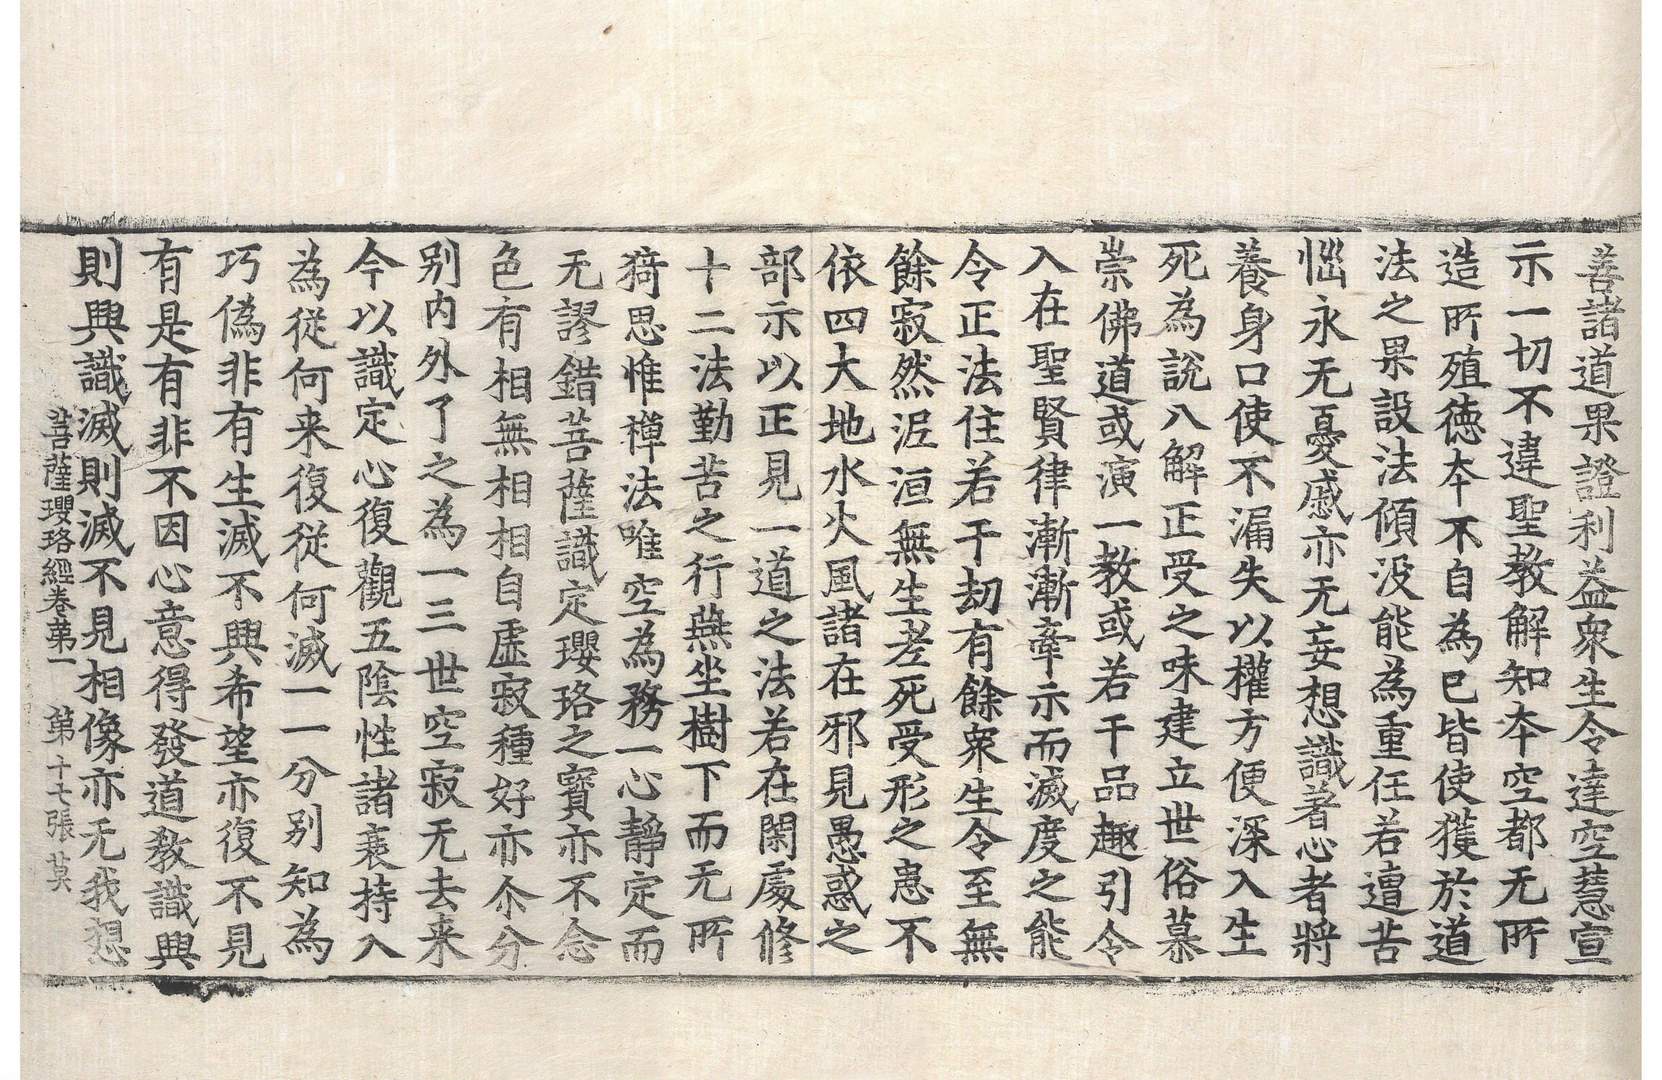 善諸道果證利益衆生令達空慧宣
示一切不違聖教解知本空都无所
造所殖德本不自為已皆使獲於道
法之果設法傾没能為重任若遭苦
惱永无憂慼亦无妄想識著心者將
養身口使不漏失以權方便深入生
死為說八解正受之味建立世俗慕
崇佛道或演一教或若干品趣引令
入在聖賢律漸漸牽示而滅度之能
令正法住若干劫有餘衆生令至無
餘寂然泥洹無生老死受形之患不
依四大地水火風諸在邪見愚惑之
部示以正見一道之法若在閑處修
十二法勤苦之行燕坐樹下而无所
猗思惟禪法唯空為務一心靜定而
无謬錯菩薩識定瓔珞之寶亦不念
色有相無相相自虛寂種好亦尒分
别内外了之為一三世空寂无去来
今以識定心復觀五陰性諸衰持入
為從何来復從何滅一一分别知為
巧偽非有生滅不興希望亦復不見
有是有非不因心意得發道教識興
則興識滅則滅不見相像亦无我想
菩薩瓔珞經卷第一　第十七張　莫